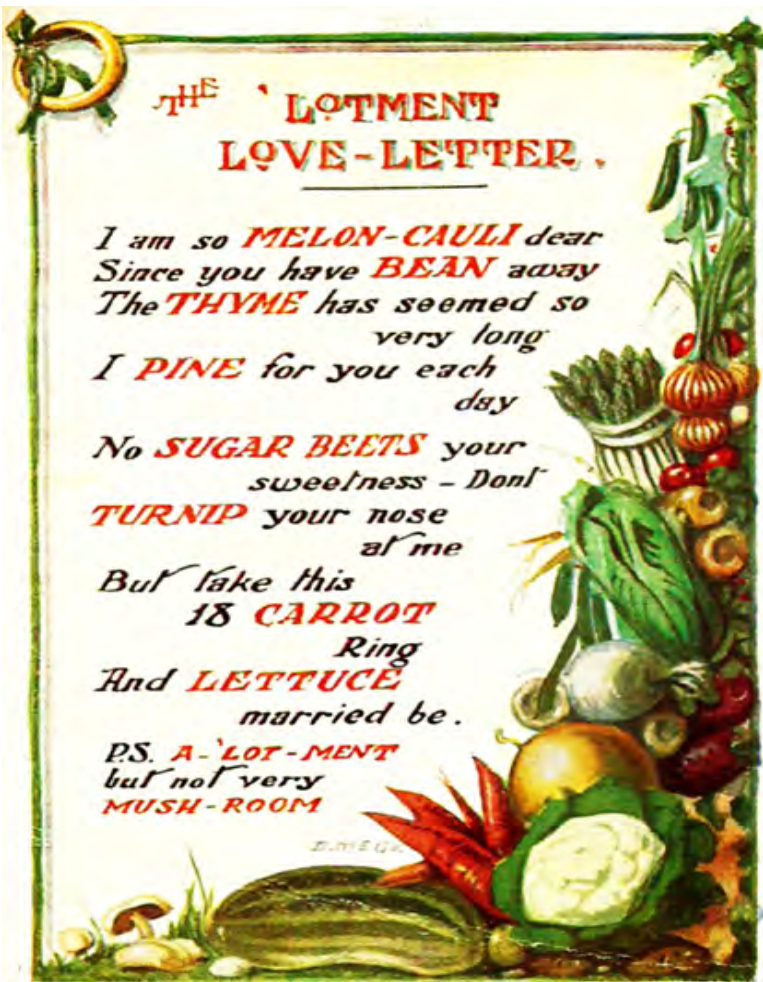 THE 'LOTMENT
LOVE-LETTER.
I am so MELON-CAULI dear
Since you have BEAN away
The THYME has seemed so
very long
I PINE for you each
day
No SUGAR BEETS your
sweetness - Dont
TURNIP your nose
at me
But take this
18 CARROT
Ring
And LETTUCE
married be.
P.S. A-'LOT-MENT
but not very
MUSH-ROOM